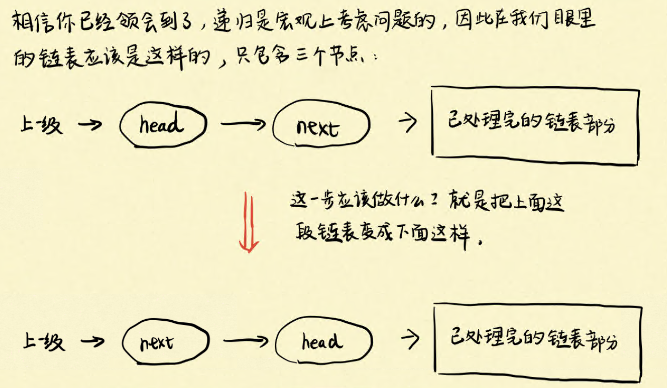 相信你已经领会到了,递归是宏观上考虑问题的,因此在我们眼里
的链表应该是这样的,只包含三个节点:
上级 → head → next → 已处理完的链表部分
这一步应该做什么?就是把上面这
段链表变成下面这样。
上级 → next → head → 已处理完的链表部分